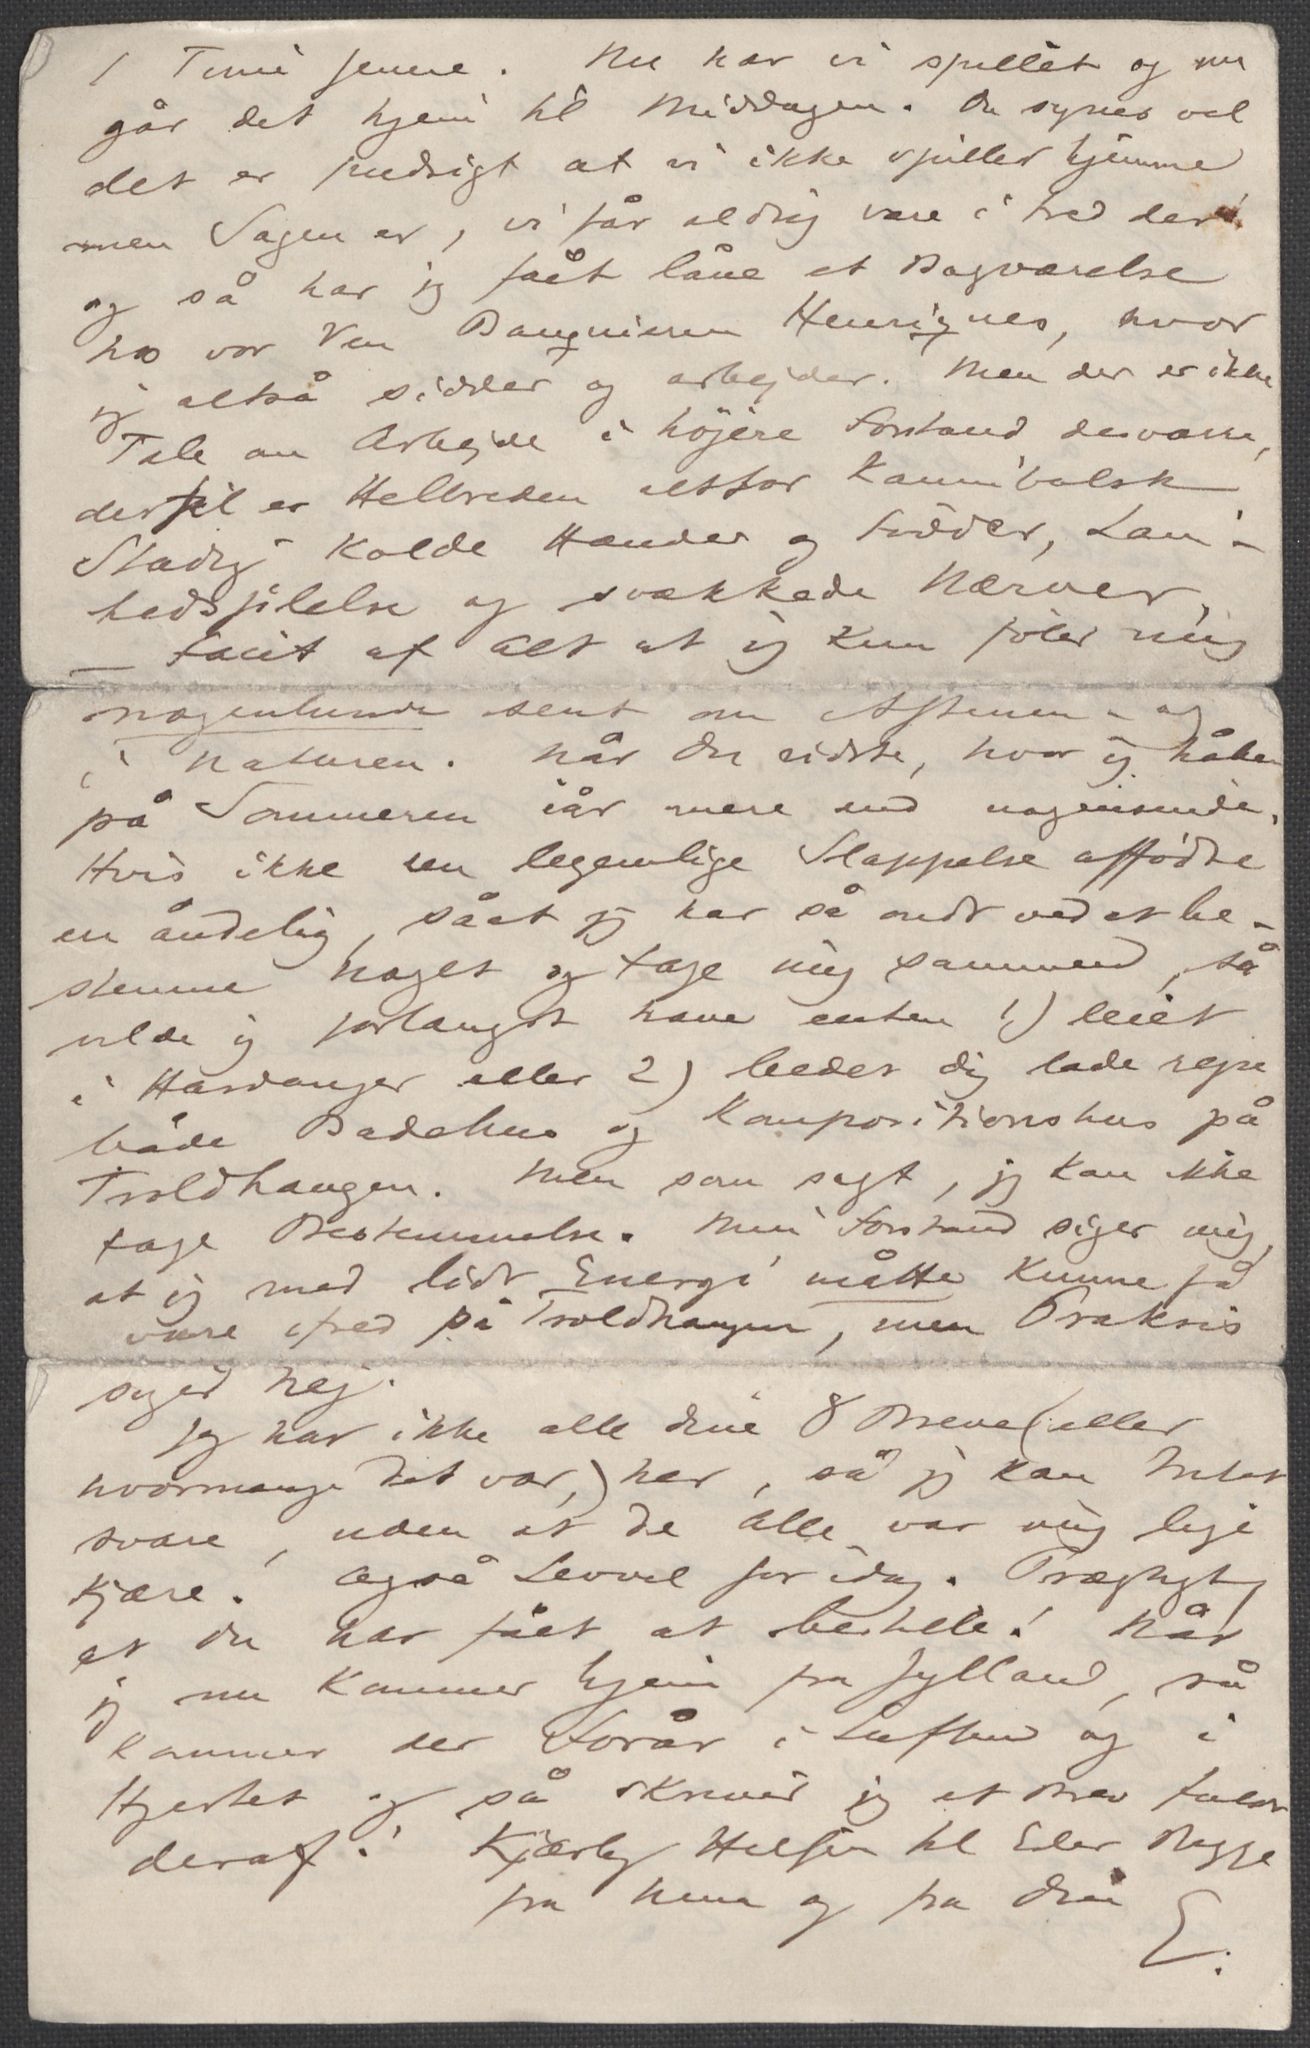 1 Time senere. Nu har vi spillet og nu
går det hjem til Middagen. Du synes vel
det er pudsigt at vi ikke spiller hjemme
men Sagen er, vi får aldrig være i Fred der
og så har jeg fået låne et Bagværelse
hos vor Ven Banquieren Henriques, hvor
jeg altså sidder og arbejder. Men der er ikke
Tale om Arbejde i højere Forstand desværre,
dertil er Helbreden altfor Kannibalsk
Stadig Kolde Hænder og Fødder, Lam-
hedsfølelse og svækkede Nærver,
– Facit af Alt at jeg kun føler mig
nogenlunde sent om Aftenen – og
i Naturen. Når Du vidste, hvor jeg håber
på Sommeren iår mere end nogensinde.
Hvis ikke den legemlige Slappelse affødte
en åndelig, såat jeg har så ondt ved at be-
stemme Noget og tage mig sammen, så
vilde jeg forlængst have enten 1) leiet
i Hardanger eller 2) bedet dig lade rejse
både Badehus og Kompositionshus på
Troldhaugen. Men som sagt, jeg kan ikke
tage Bestemmelse. Min Forstand siger mig,
at jeg med lidt Energi måtte kunne få
være ifred på Troldhaugen, men Praksis
siger Nej.
Jeg har ikke alle dine 8 Breve (eller
hvormange det var,) her, så jeg kan Intet
svare, uden at de alle var mig lige
kjære. Også Levvel for idag. Prægtigt,
at Du har fået at bestille! Når
jeg nu kommer hjem fra Jylland, så
kommer der Forår i Luften og i
Hjertet og så skriver jeg et Brev fuldt
deraf! Kjærlig Hilsen til Eder Begge
fra Nina og fra Din
E.